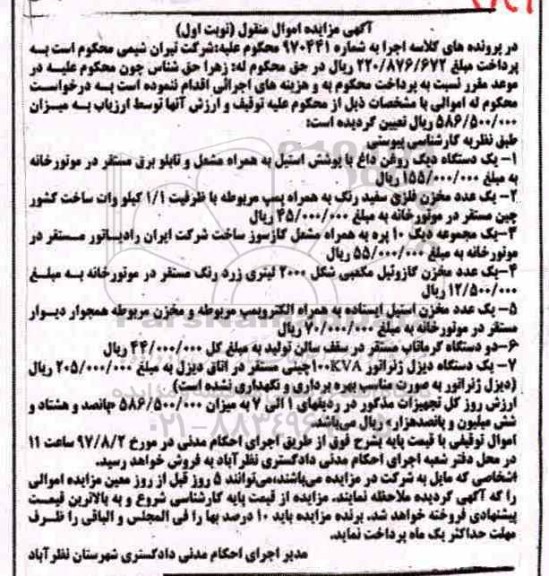 آگهی مزایده اموال منقول (نوبت اول)
در پرونده های کلاسه اجرا به شماره ۹۷۰۴۴۱ محکوم علیه:شرکت تیران شیمی محکوم است به
پرداخت مبلغ ۲۲۰/۸۷۶/۶۷۲ ریال در حق محکوم له: زهرا حق شناس چون محکوم علیه در
موعد مقرر نسبت به پرداخت محکوم به و هزینه های اجرائی اقدام ننموده است به درخواست
محکوم له اموالی با مشخصات ذیل از محکوم علیه توقیف و ارزش آنها توسط ارزیاب به میزان
۵۸۶/۵۰۰/۰۰۰ ریال تعیین گردیده است:
طبق نظریه کارشناسی پیوستی
۱- یک دستگاه دیگ روغن داغ با پوشش استیل به همراه مشعل و تابلو برق مستقر در موتورخانه
به مبلغ ۱۵۵/۰۰۰/۰۰۰ ریال
۲- یک عدد مخزن فلزی سفید رنگ به همراه پمپ مربوطه با ظرفیت ۱/۱ کیلو وات ساخت کشور
چین مستقر در موتورخانه به مبلغ ۴۵/۰۰۰/۰۰۰ ریال
۳-یک مجموعه دیگ ۱۰ پره به همراه مشعل گازسوز ساخت شرکت ایران رادیاتور مستقر در
موتورخانه به مبلغ ۵۵/۰۰۰/۰۰۰ ریال
۴-یک عدد مخزن گازوئیل مکعبی شکل ۲۰۰۰ لیتری زرد رنگ مستقر در موتورخانه به مبلغ
۱۲/۵۰۰/۰۰۰ ریال
۵- یک عدد مخزن استیل ایستاده به همراه الکتروپمپ مربوطه و مخزن مربوطه همجوار دیوار
مستقر در موتورخانه به مبلغ ۷۰/۰۰۰/۰۰۰ ریال
۶-دو دستگاه گرماتاب مستقر در سقف سالن تولید به مبلغ کل ۴۴/۰۰۰/۰۰۰ ریال
۷- یک دستگاه دیزل ژنراتور ۱۰۰KVA چینی مستقر در اتاق دیزل به مبلغ ۲۰۵/۰۰۰/۰۰۰ ریال
(دیزل ژنراتور به صورت مناسب بهره برداری و نگهداری نشده است)
ارزش روز کل تجهیزات مذکور در ردیفهای ۱ الی ۷ به میزان ۵۸۶/۵۰۰/۰۰۰ «پانصد و هشتاد و
شش میلیون و پانصدهزار» ریال می‌باشد.
اموال توقیفی با قیمت پایه بشرح فوق از طریق اجرای احکام مدنی در مورخ ۹۷/۸/۲ ساعت ۱۱
در محل دفتر شعبه اجرای احکام مدنی دادگستری نظرآباد به فروش خواهد رسید.
اشخاصی که مایل به شرکت در مزایده می‌باشند،می‌توانند ۵ روز قبل از روز معین مزایده اموالی
را که آگهی گردیده ملاحظه نمایند. مزایده از قیمت پایه کارشناسی شروع و به بالاترین قیمت
پیشنهادی فروخته خواهد شد. برنده مزایده باید ۱۰ درصد بها را فی المجلس و الباقی را ظرف
مهلت حداکثر یک ماه پرداخت نماید.
مدیر اجرای احکام مدنی دادگستری شهرستان نظرآباد